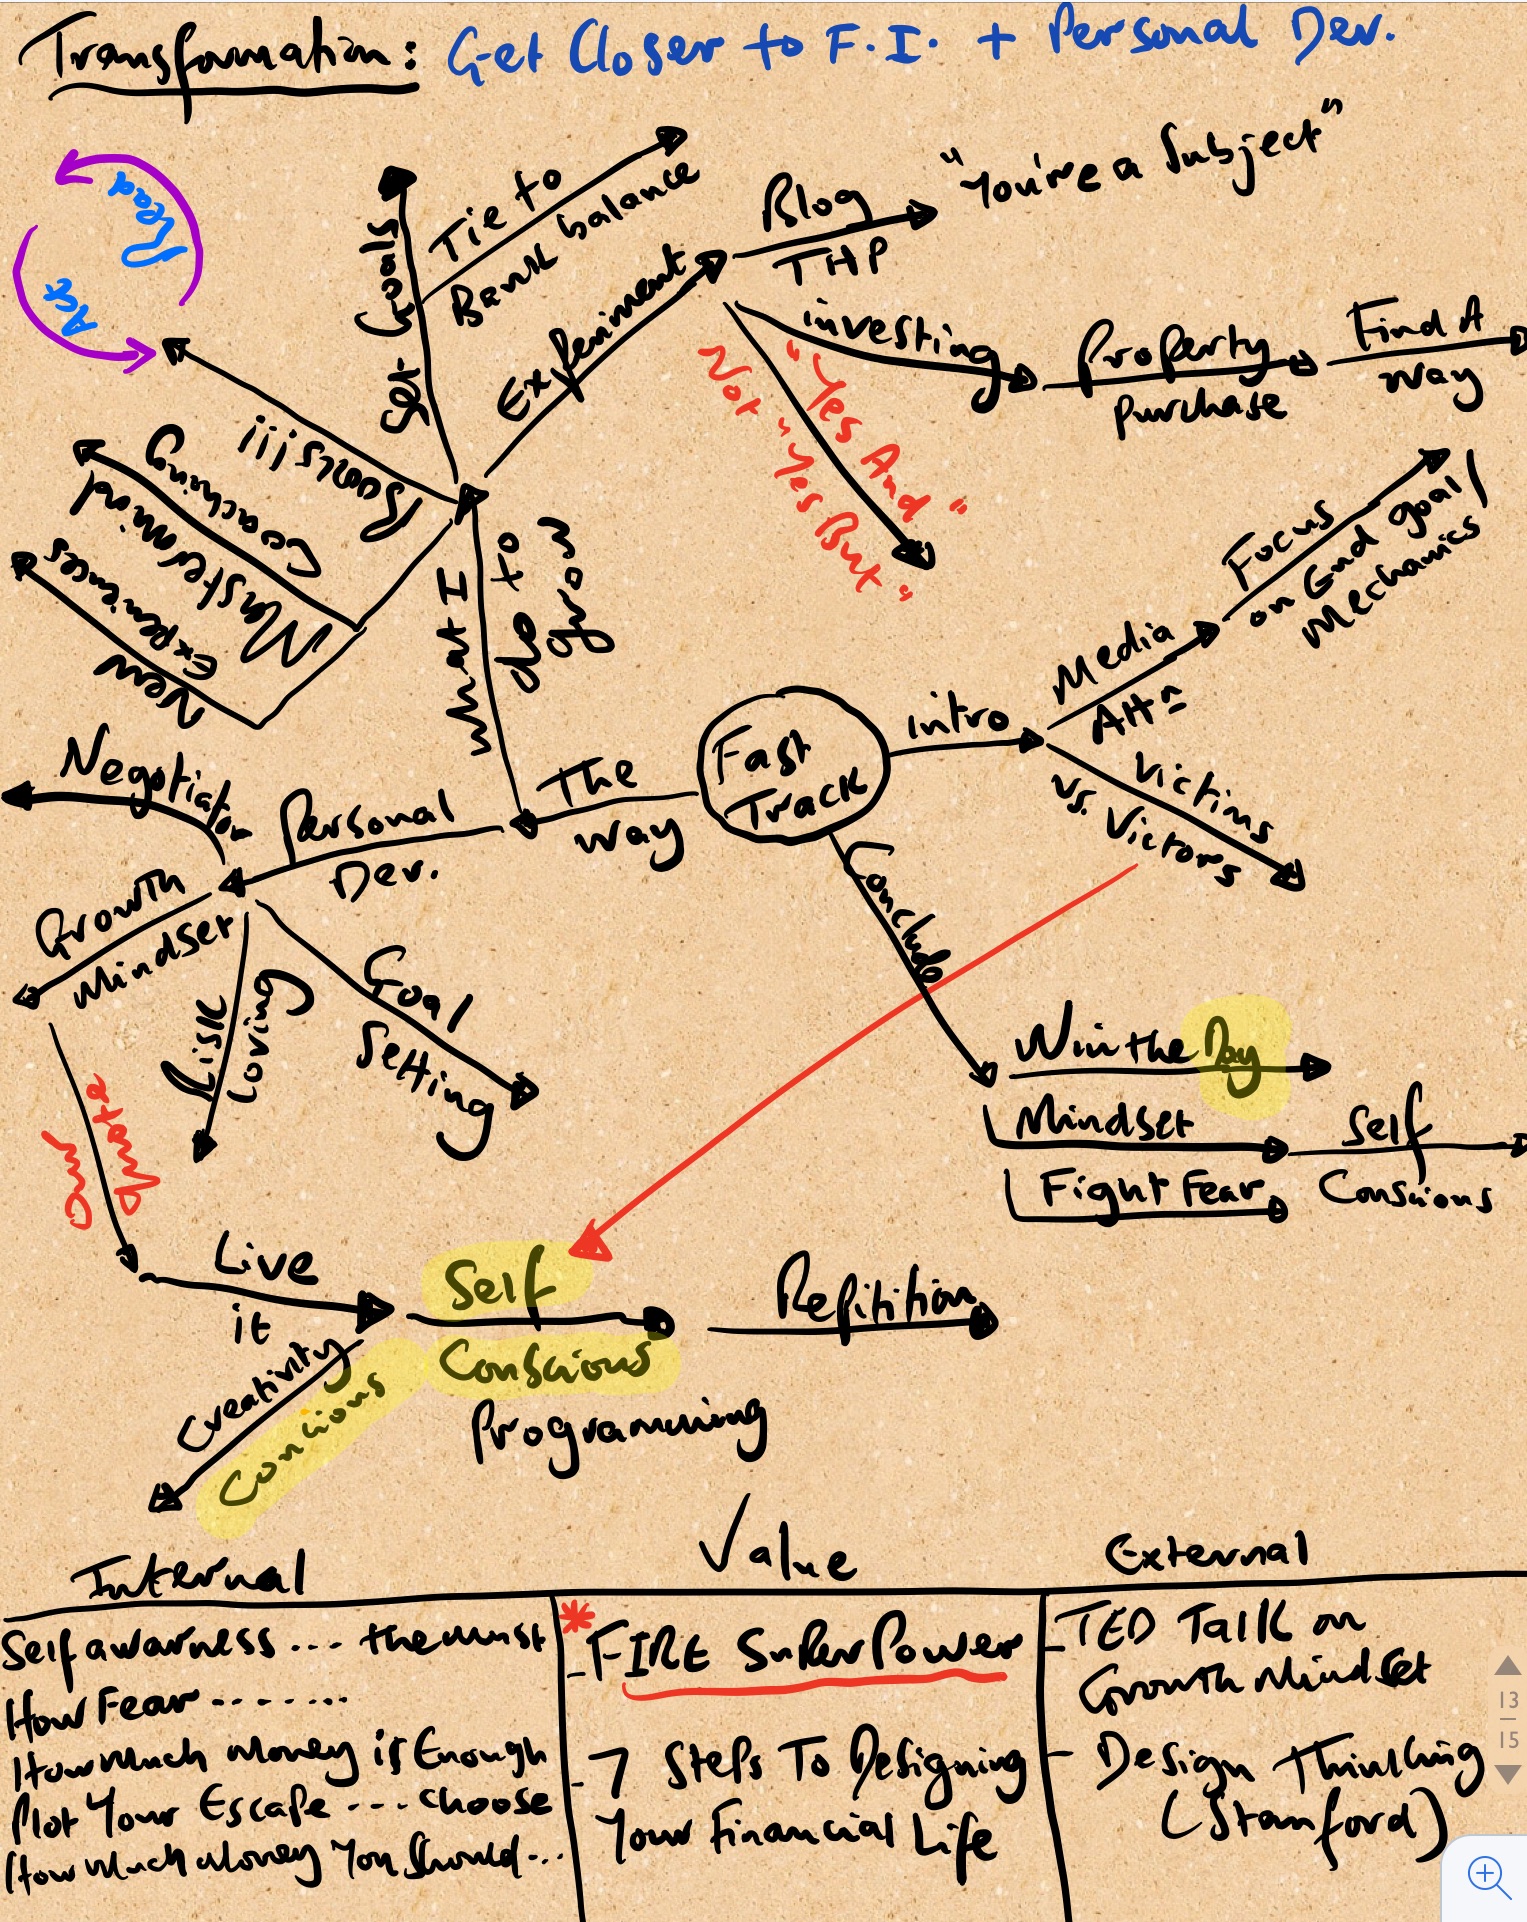 Transformation: Get Closer to F.I. + Personal Dev.
Read
Act
Set Goals
Tie to
Bank balance
Experiment
Blog
THP
"You're a Subject"
investing
Property
purchase
Find A
way
"Yes And"
Not "Yes But"
Books!!!
Coaching
Mastermind
New
Experiences
What I
do to
grow
Media
Attn
Focus
on End goal/
Mechanics
intro
Fast
Track
Victims
vs. Victors
The
way
Personal
Dev.
Negotiator
Growth
Mindset
Risk
Loving
Goal
Setting
Conclude
Win the Day
Mindset
Self
Conscious
Fight Fear
our
quote
Live
it
Creativity
Concious
Self
Conscious
Programming
Repitition
Value
Internal
External
Self awarness ... the must
How Fear .......
How Much Money is Enough
Plot Your Escape ... choose
How Much Money You Should...
* - FIRE SuperPower
- 7 Steps To Designing
Your Financial Life
- TED Talk on
Growth Mindset
- Design Thinking
(Stanford)
13
15